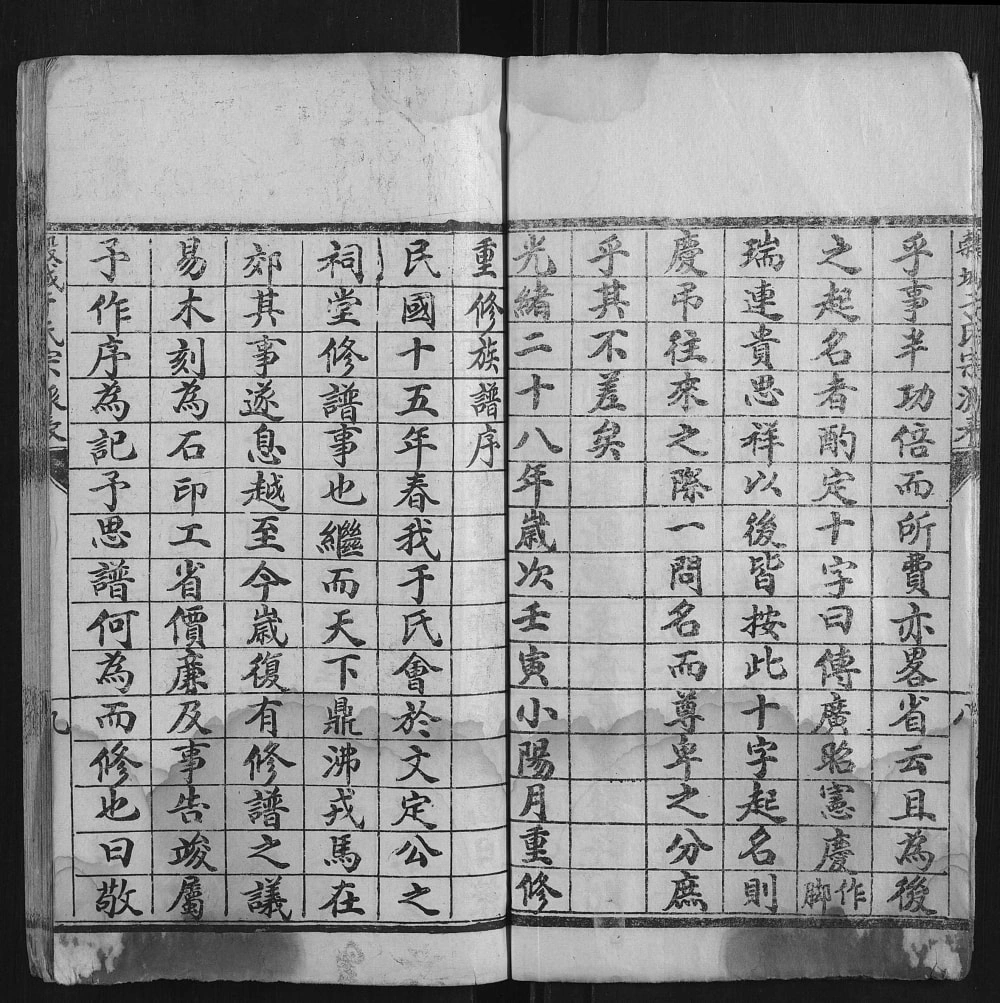 乎事半功倍而所費亦畧省云且為後
之起名者酌定十字曰傳廣昭憲慶作脚
瑞連貴思祥以後皆按此十字起名則
慶吊往來之際一問名而尊卑之分庶
乎其不差矣
光緒二十八年歲次壬寅小陽月重修
重修族譜序
民國十五年春我于氏會於文定公之
祠堂修譜事也繼而天下鼎沸戎馬在
郊其事遂息越至今歲復有修譜之議
易木刻為石印工省價廉及事告竣屬
予作序為記予思譜何為而修也曰敬
氏宗
八
九